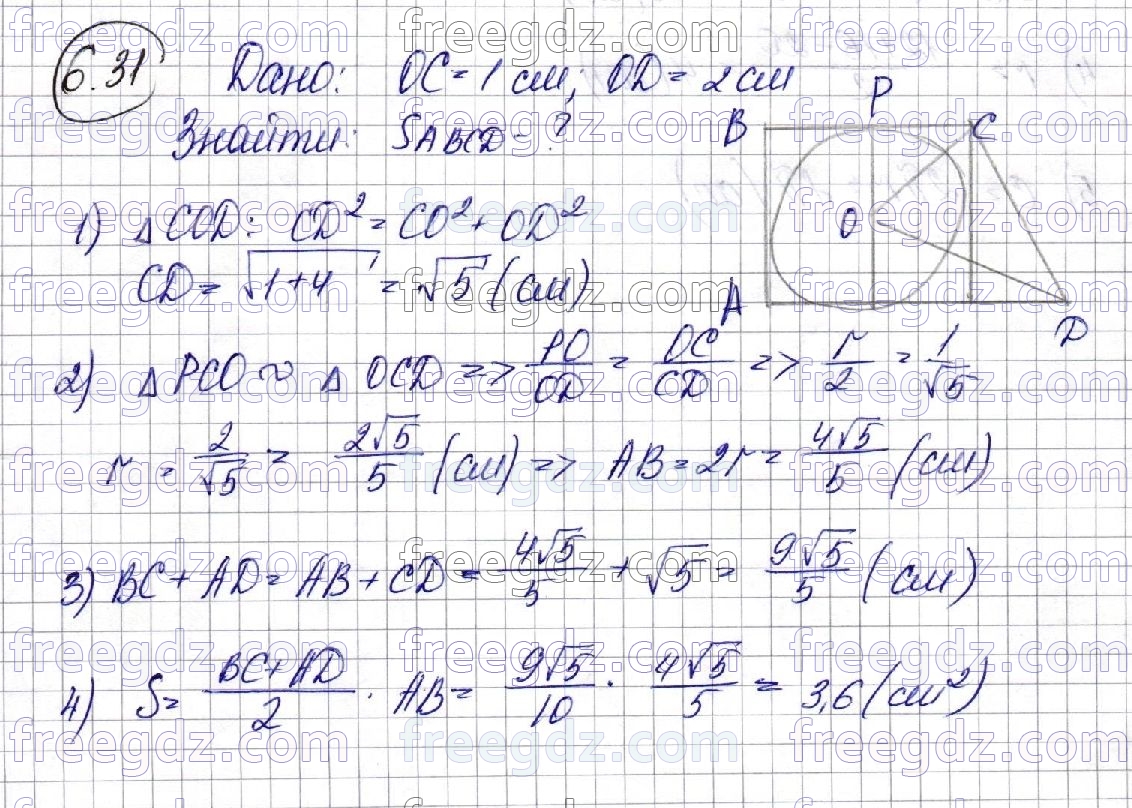 6.31 Дано: OC = 1 см; OD = 2 см
Знайти: SABCD - ?
B P C
O
A D
1) △ COD: CD² = CO² + OD²
CD = √1+4 = √5 (см)
2) △ PCO ~ △ OCD => PO/OD = OC/CD => r/2 = 1/√5
r = 2/√5 = 2√5/5 (см) => AB = 2r = 4√5/5 (см)
3) BC + AD = AB + CD = 4√5/5 + √5 = 9√5/5 (см)
4) S = BC+AD/2 · AB = 9√5/10 · 4√5/5 = 3,6 (см²)
freegdz.com